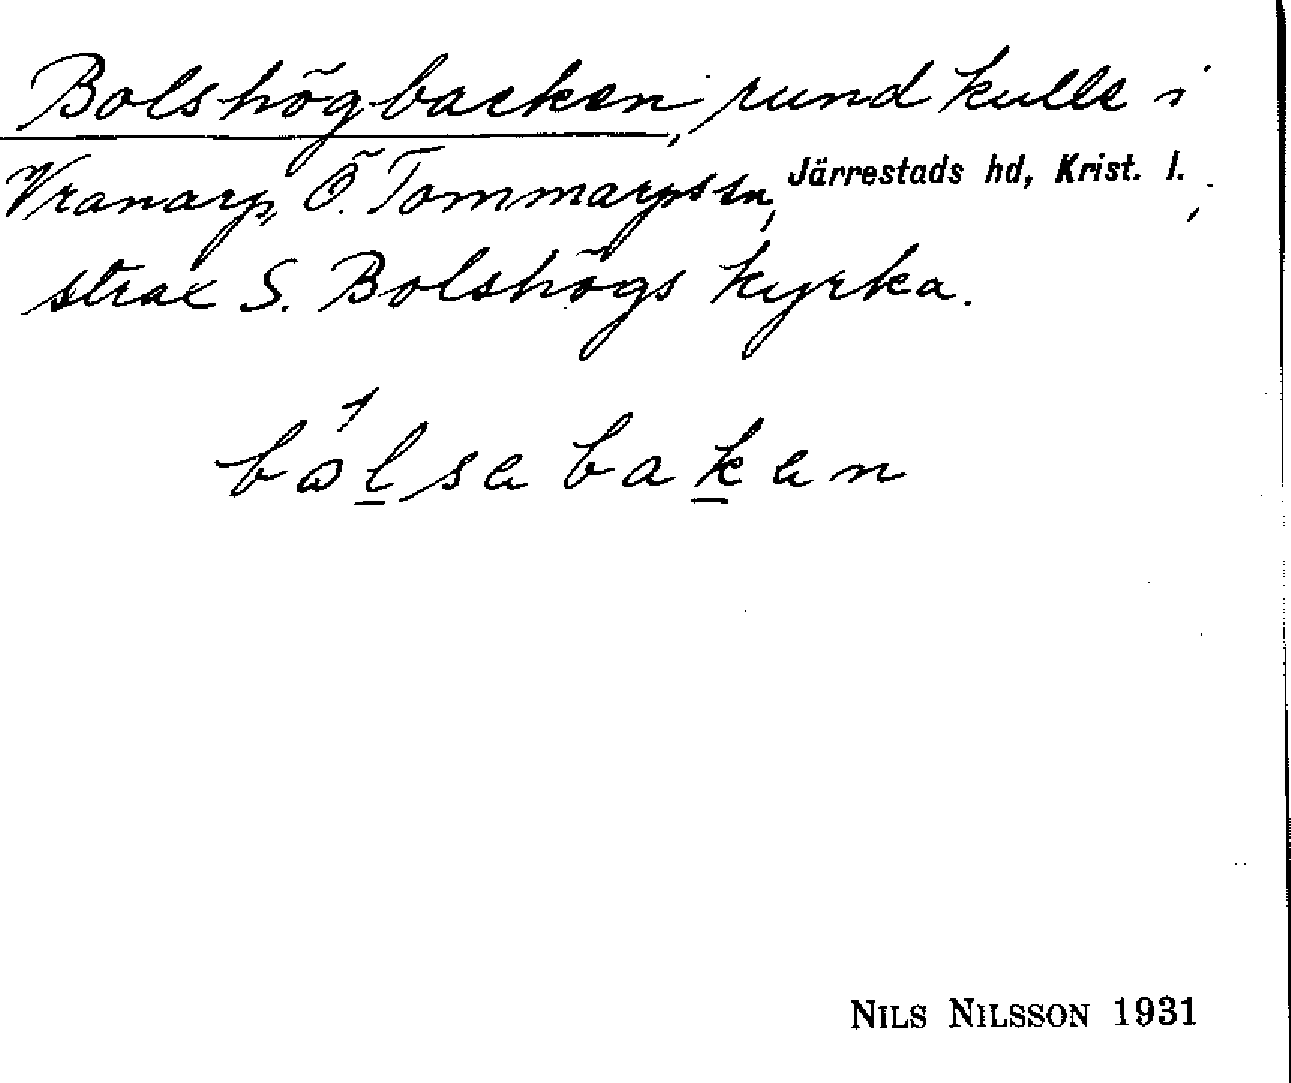 Bolshögbacken, rund kulle i
Vranarp, Ö. Tommarps sn, Järrestads hd, Krist. l.,
strax S. Bolshögs kyrka.
bɷ́l̲sɐ bak̲ɐn
NILS NILSSON 1931